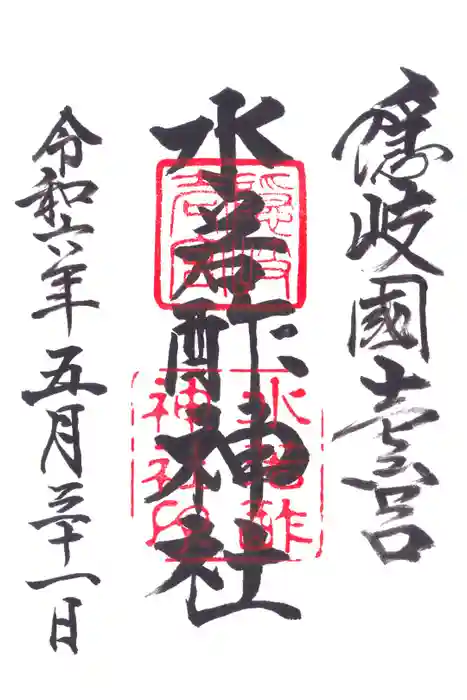 隠岐國壹宮
水若酢神社
令和六年五月三十一日
隠岐
壱宮
水若酢
神社印